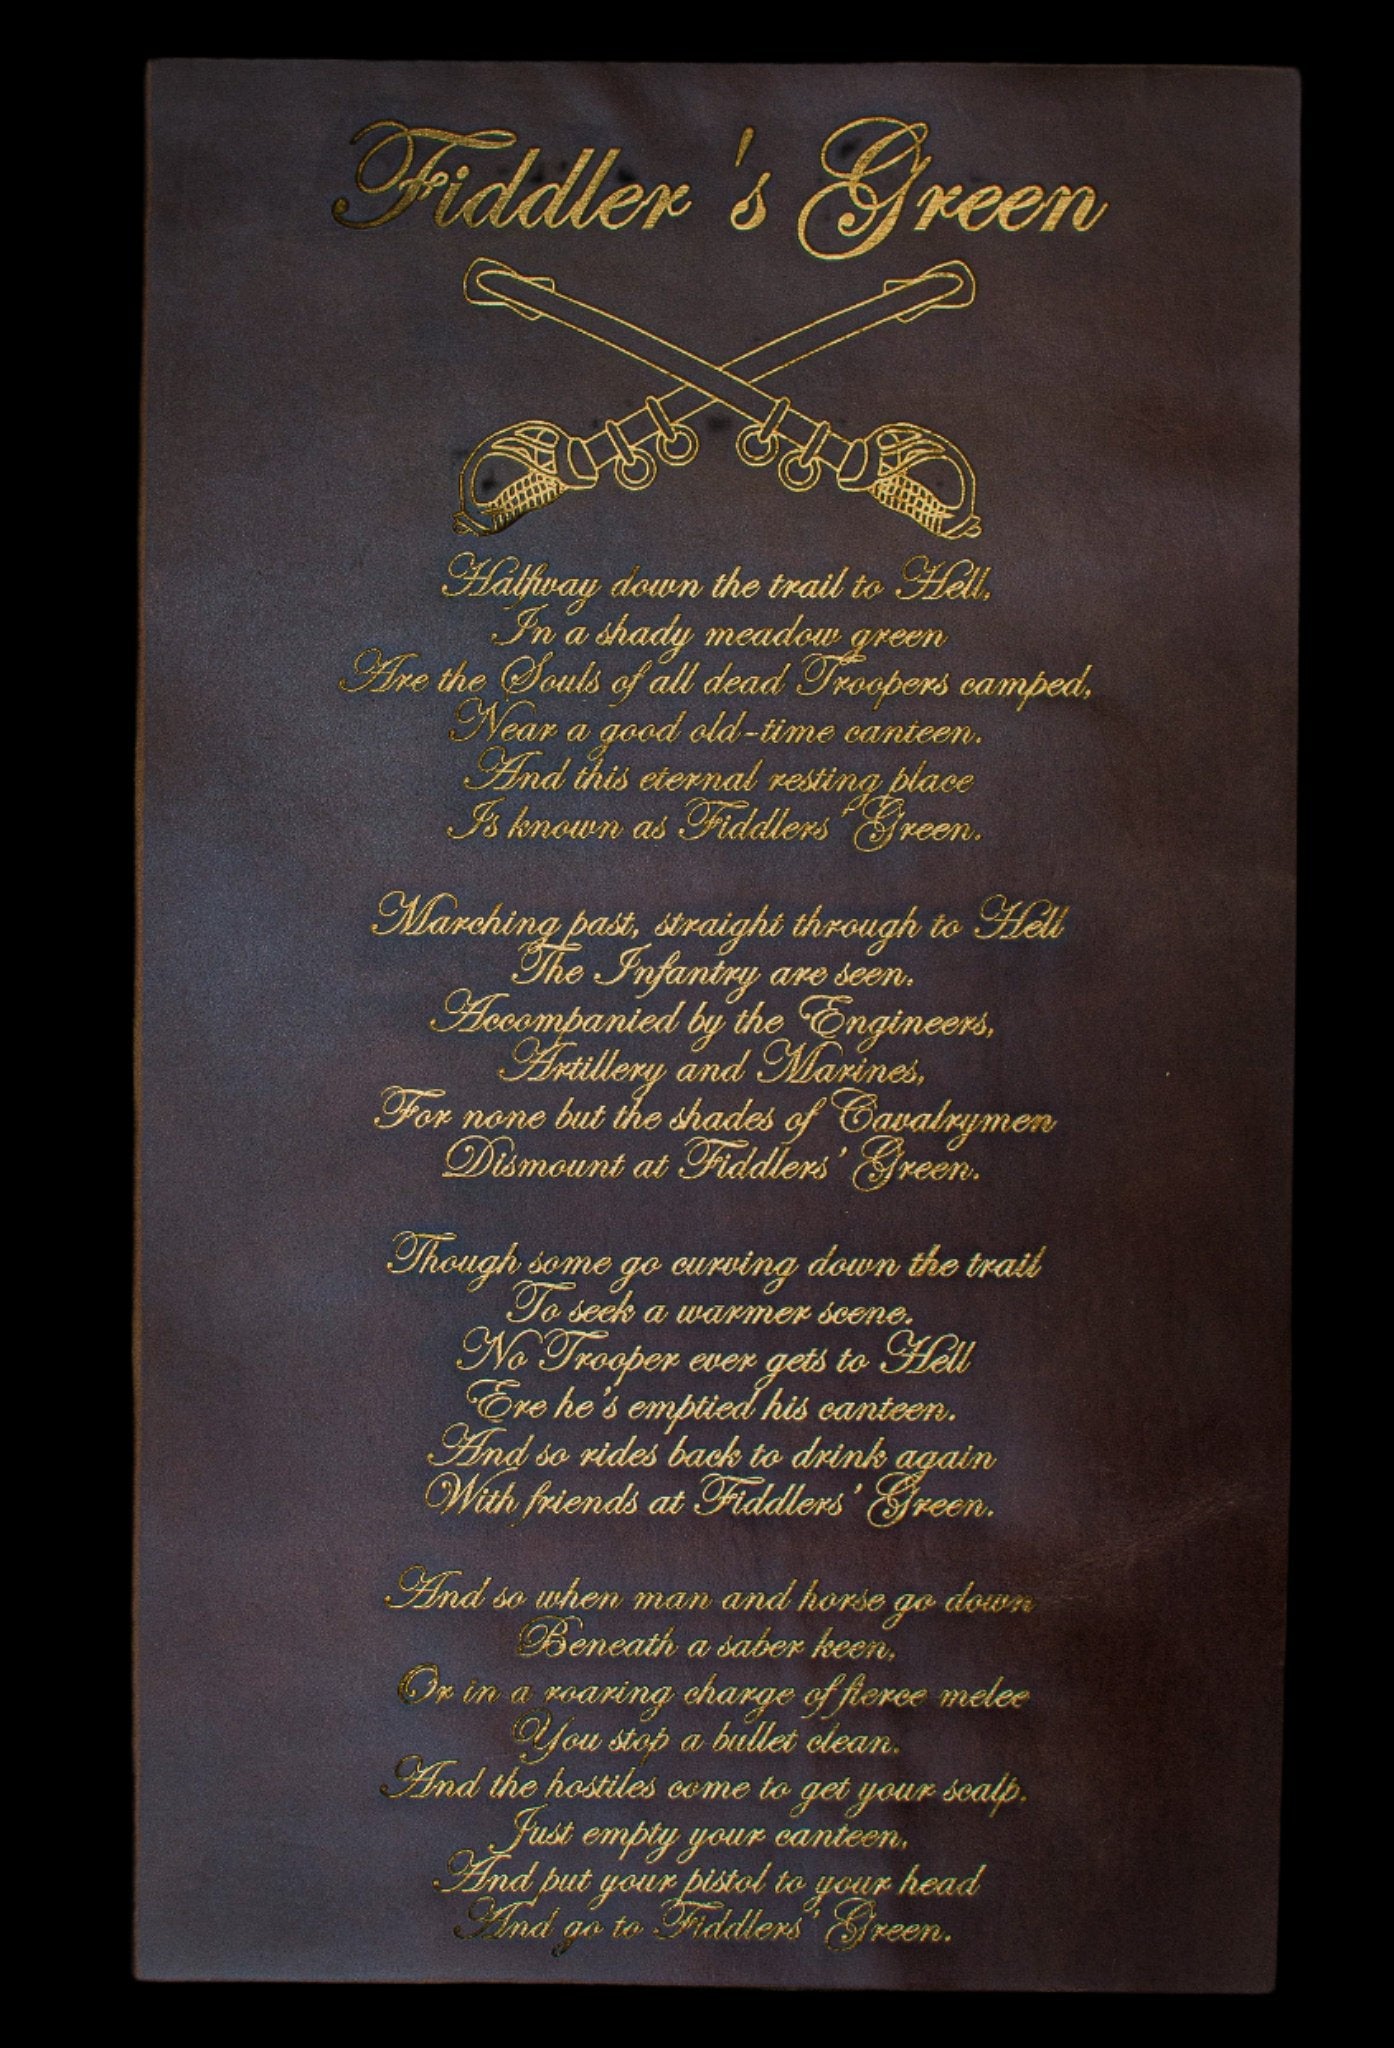 Fiddler's Green
Halfway down the trail to Hell,
In a shady meadow green
Are the Souls of all dead Troopers camped,
Near a good old-time canteen.
And this eternal resting place
Is known as Fiddlers' Green.
Marching past, straight through to Hell
The Infantry are seen.
Accompanied by the Engineers,
Artillery and Marines,
For none but the shades of Cavalrymen
Dismount at Fiddlers' Green.
Though some go curving down the trail
To seek a warmer scene.
No Trooper ever gets to Hell
Ere he's emptied his canteen.
And so rides back to drink again
With friends at Fiddlers' Green.
And so when man and horse go down
Beneath a saber keen,
Or in a roaring charge of fierce melee
You stop a bullet clean.
And the hostiles come to get your scalp.
Just empty your canteen,
And put your pistol to your head
And go to Fiddlers' Green.